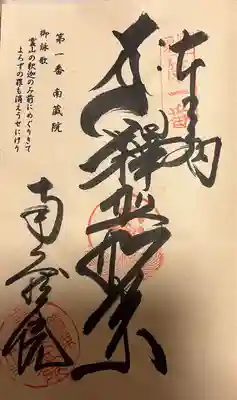 奉拝
釋迦如来
南蔵院
第一番 南蔵院
御詠歌
霊山の釈迦のみ前にめぐりきて
よろずの罪も消えうせにけり